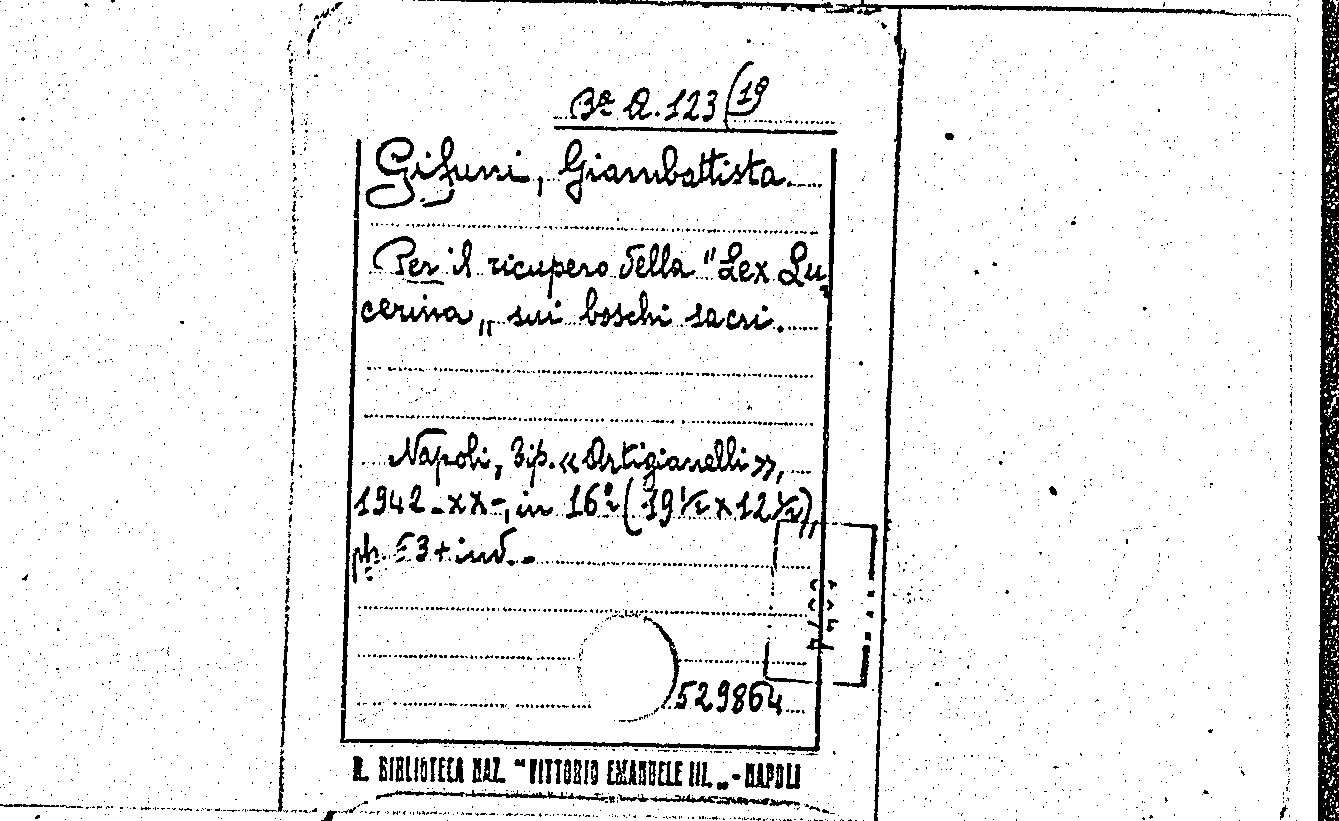 3ª A. 123 (19
Gifuni, Giambattista.
Per il ricupero della "Lex Lu-
cerina„ sui boschi sacri.
Napoli, Tip. «Artigianelli»,
1942-XX-, in 16º (19 ½ x 12 ½),
pp. 53 + ind.-
529864
R. BIBLIOTECA NAZ. "VITTORIO EMANUELE III.„ - NAPOLI